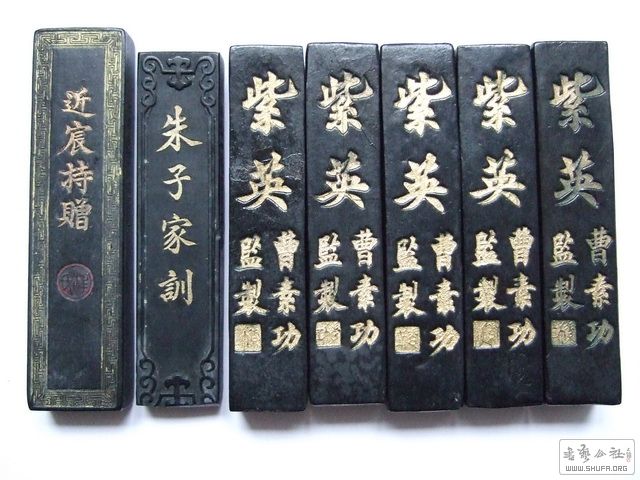 近宸持贈
朱子家訓
紫英
曹素功
監製
紫英
曹素功
監製
紫英
曹素功
監製
紫英
曹素功
監製
紫英
曹素功
監製
WWW.SHUFA.ORG